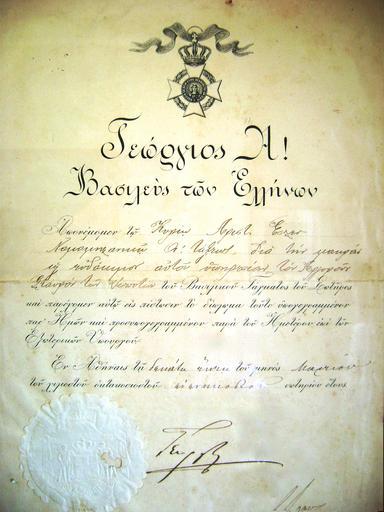 Γεώργιος Α!
Βασιλεὺς τῶν Ἑλλήνων
Ἀπονέμομεν τῷ Κυρίῳ Ἀριστ.
Α! τάξεως διὰ τὴν μακρὰν
εὐδόκιμον αὐτοῦ ὑπηρεσίαν τὸν Ἀργυροῦν
Σταυρὸν τῶν Ἱπποτῶν τοῦ Βασιλικοῦ Τάγματος τοῦ Σωτῆρος
καὶ παρέχομεν αὐτῷ εἰς πίστωσιν τὸ δίπλωμα τοῦτο ὑπογεγραμμένον
παρ' Ἡμῶν καὶ προσυπογεγραμμένον παρὰ τοῦ Ἡμετέρου ἐπὶ τῶν
Ἐξωτερικῶν Ὑπουργοῦ
Ἐν Ἀθήναις τῇ δεκάτῃ τοῦ μηνὸς Μαρτίου
τοῦ χιλιοστοῦ ὀκτακοσιοστοῦ ἐνενηκοστοῦ σωτηρίου ἔτους